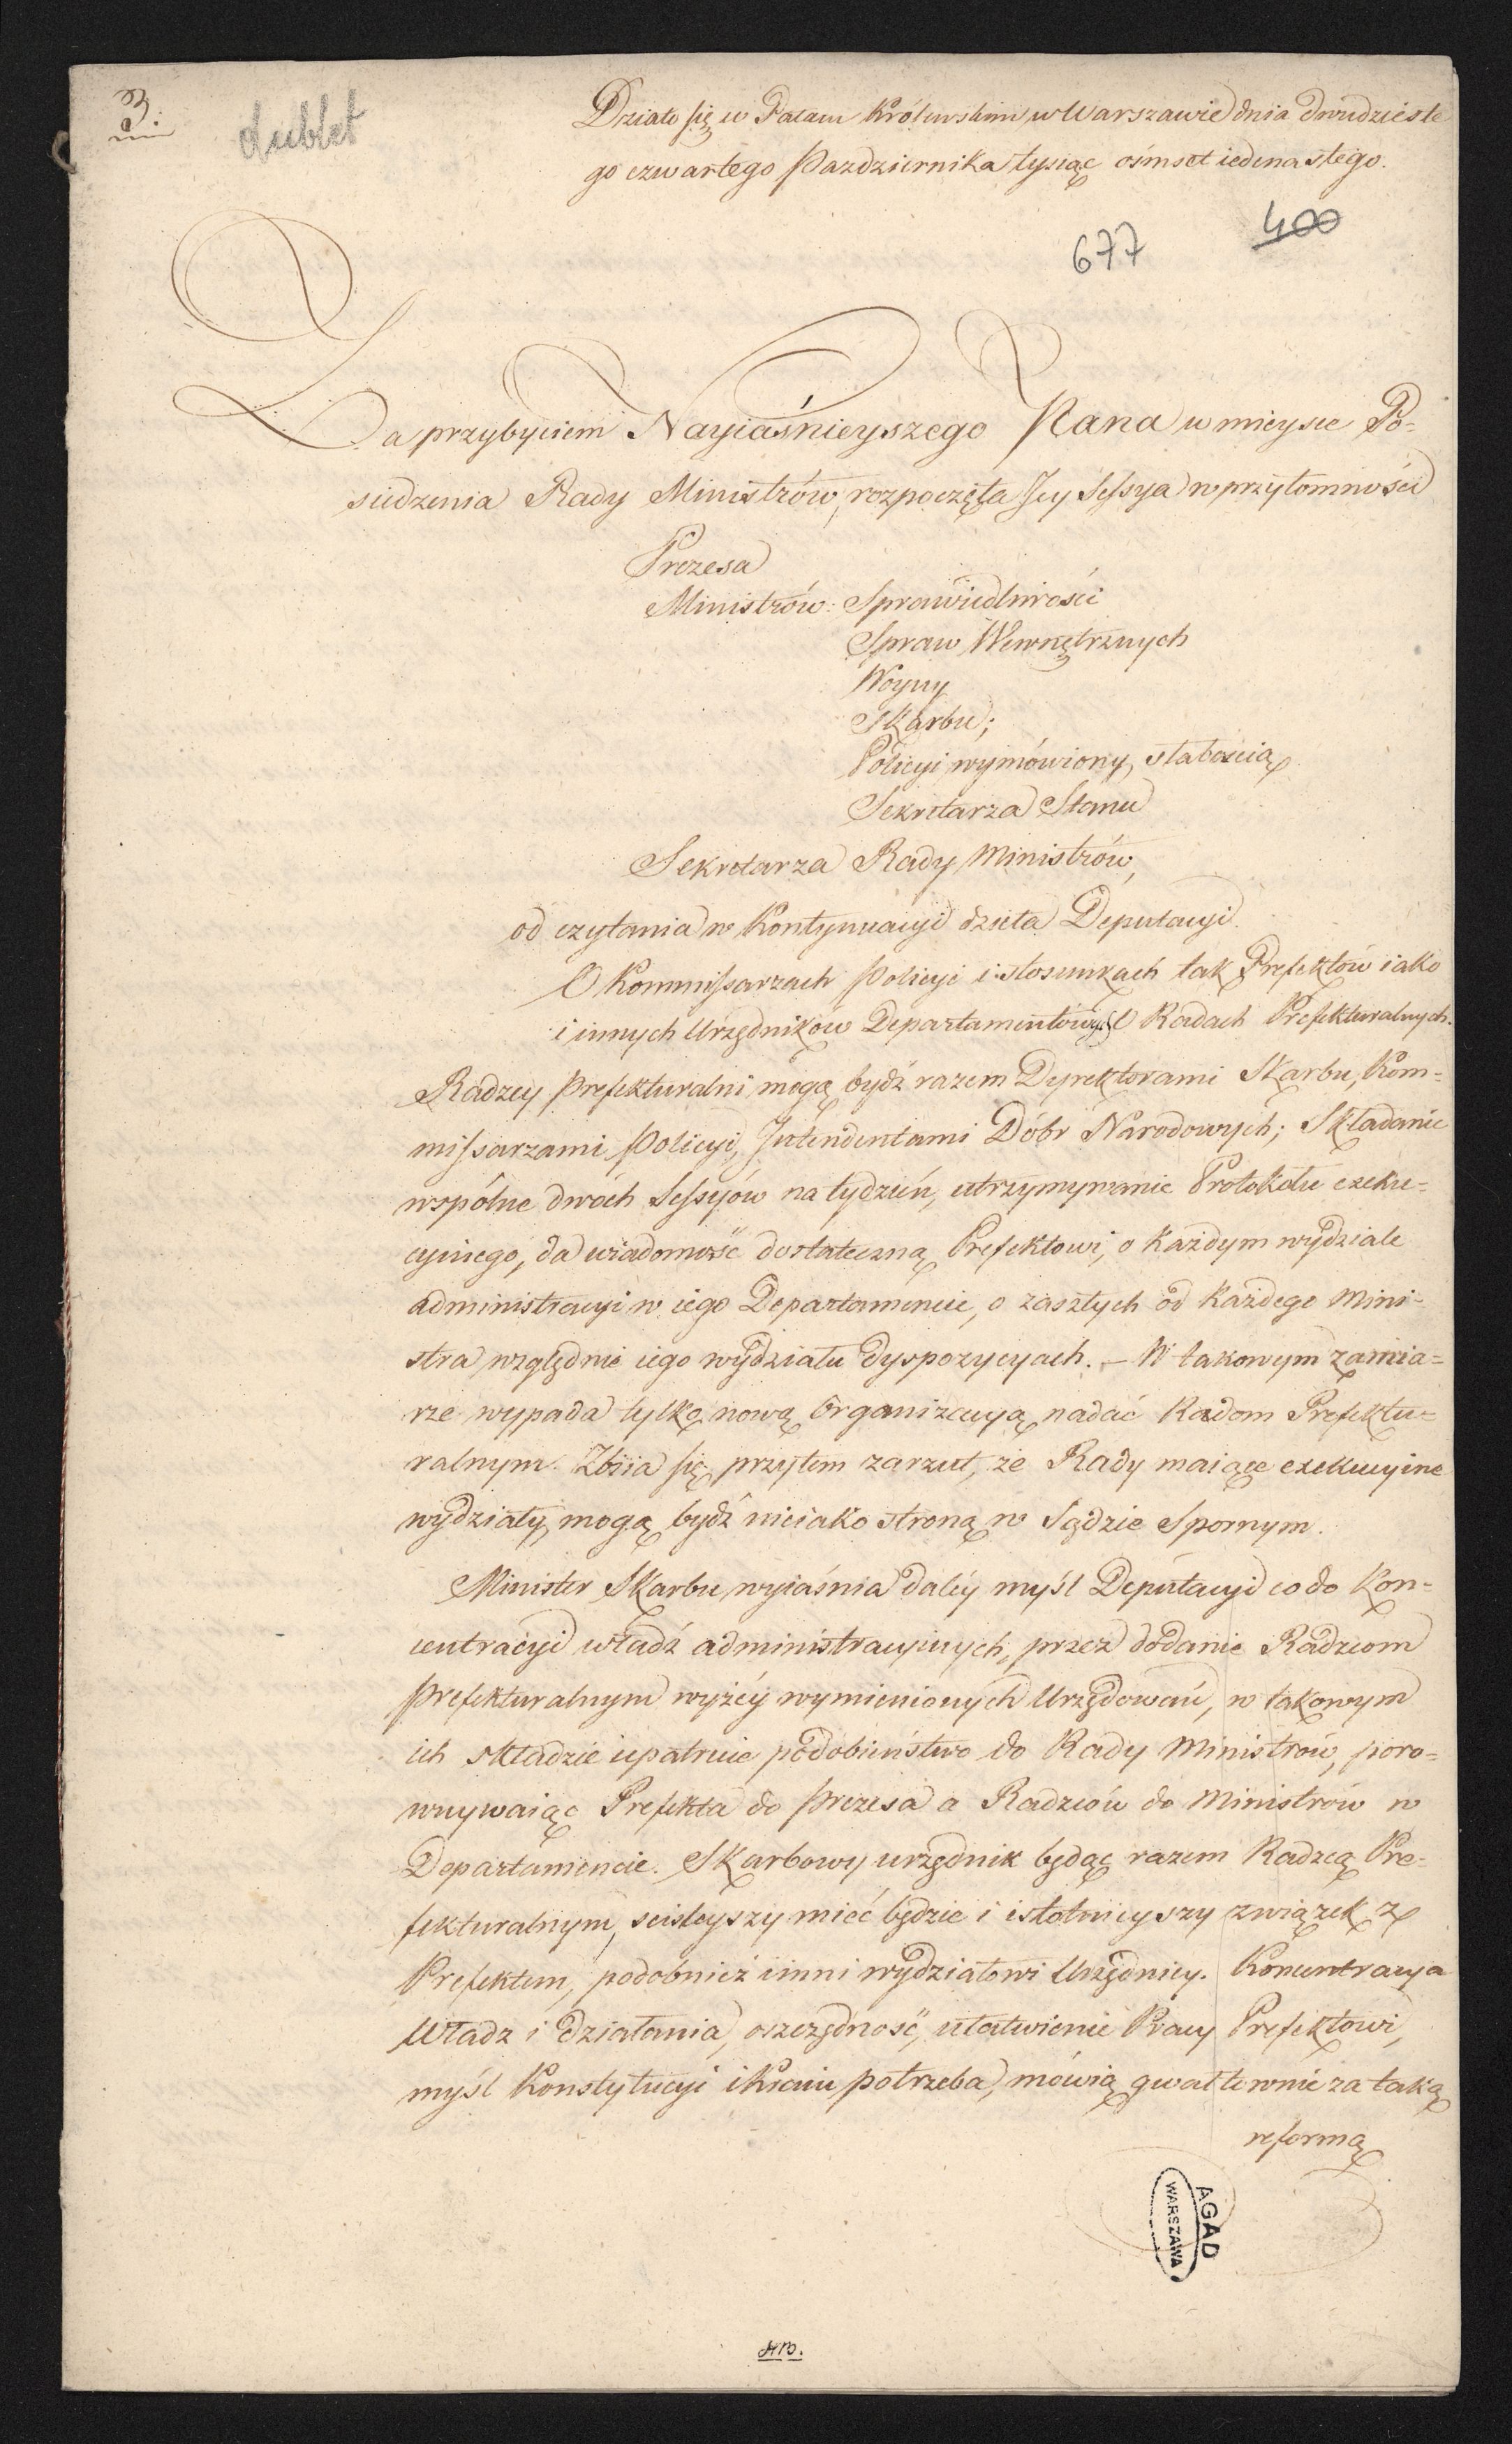 3.
dublet
Działo się w Pałacu Królewskim w Warszawie dnia dwudzieste
go czwartego Pazdziernika tysiąc ośmset iedenastego.
677
400
Za przybyciem Nayiaśnieyszego Pana w mieysce Po=
siedzenia Rady Ministrów, rozpoczęta Jey Sessya w przytomności
Prezesa
Ministrów: Sprawiedliwości
Spraw Wewnętrznych
Woyny
Skarbu;
Policyi wymówiony słabością
Sekretarza Stanu
Sekretarza Rady Ministrów,
od czytania w kontynuacyi dzieła Deputacyi.
O Kommissarzach Policyi i stosunkach tak Prefektów iako
i innych Urzędników Departamentowych O Radach Prefekturalnych.
Radzcy Prefekturalni mogą bydź razem Dyrektorami Skarbu, Kom=
missarzami Policyi, Jntendentami Dóbr Narodowych; Składanie
wspólne dwóch Sessyów na tydzień, utrzymywanie Protokółu exeku=
cyinego, da wiadomość dostateczną Prefektowi, o każdym wydziale
administracyi w iego Departamencie, o zaszłych od każdego Mini=
stra względnie iego wydziału dyspozycyach. – W takowym zamia=
rze wypada tylko nową Organizacyą nadać Radom Prefektu=
ralnym. Zbiia się przytem zarzut, że Rady maiące exekucyine
wydziały, mogą bydź nieiako stroną w Sądzie Spornym.
Minister Skarbu wyiaśnia daley myśl Deputacyi co do kon=
centracyi władz administracyinych, przez dodanie Radzcom
Prefekturalnym wyżey wymienionych Urzędowań, w takowym
ich składzie upatruie podobieństwo do Rady Ministrów, poro=
wnywaiąc Prefekta do Prezesa a Radzców do Ministrów w
Departamencie. Skarbowy urzędnik będąc razem Radzcą Pre=
fekturalnym, scisleyszy mieć będzie i istotnieyszy związek z
Prefektem, podobnież inni wydziałowi Urzędnicy. Koncentracya
Władz i działania, oszczędność, ułatwienie Pracy Prefektowi,
myśl Konstytucyi i kraiu potrzeba, mówią gwałtownie za taką
reformą
AGAD
WARSZAWA